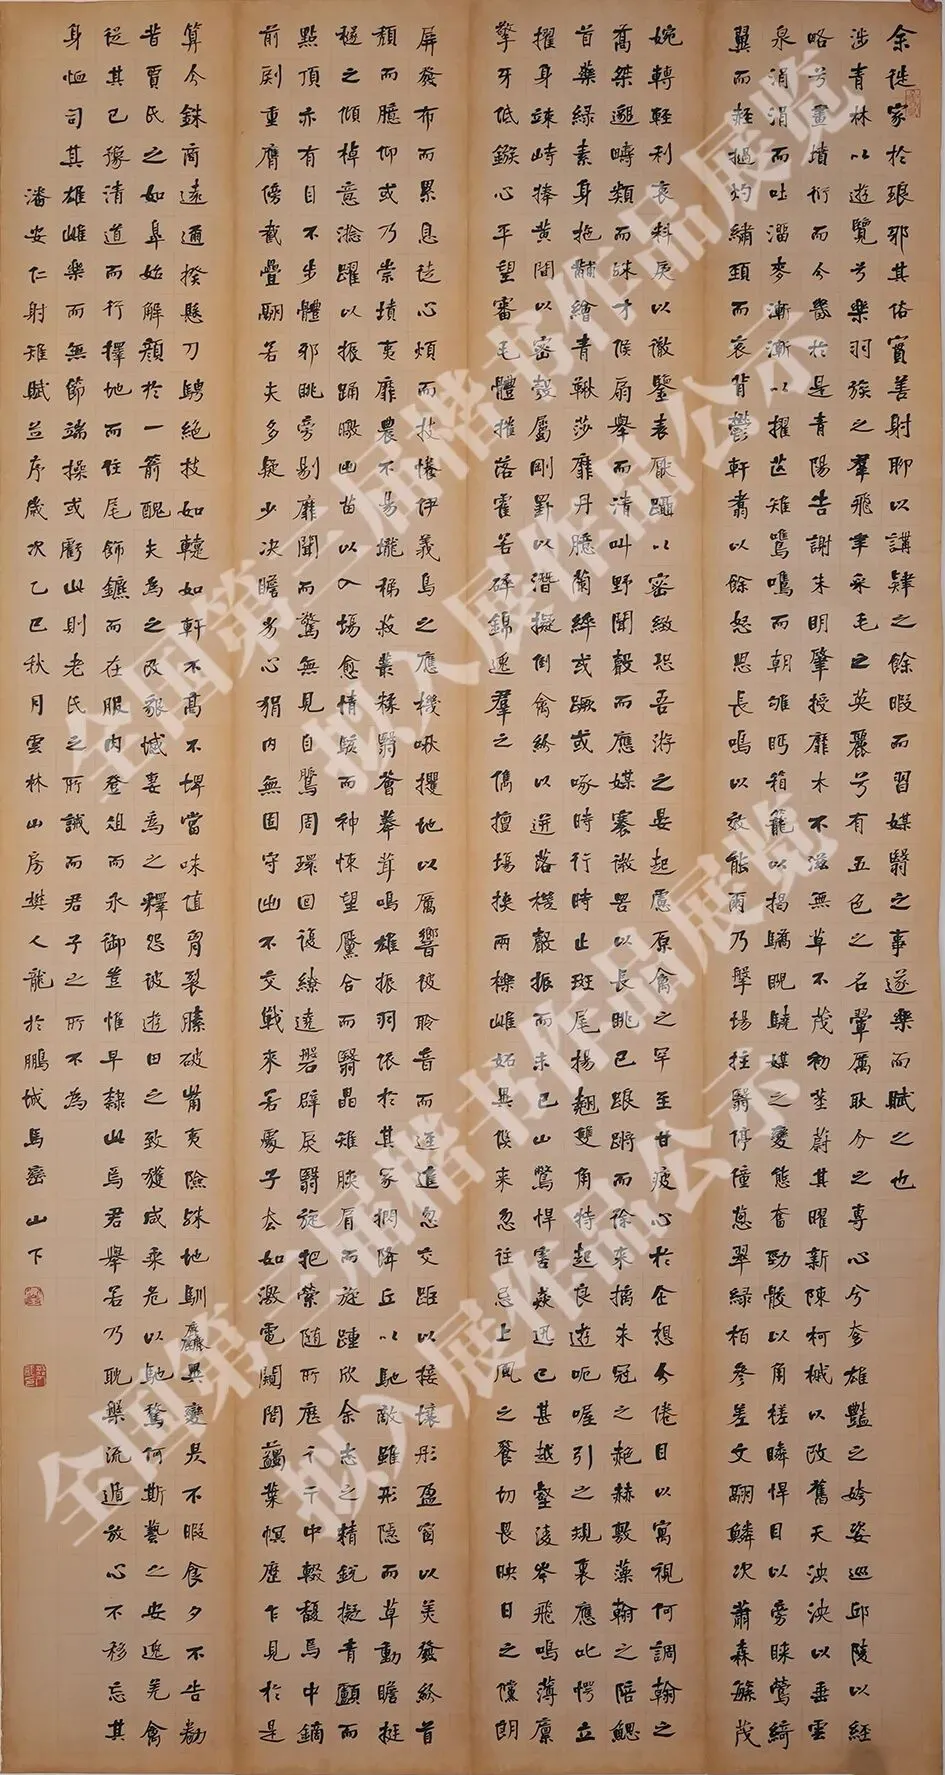 余徙家於琅邪其俗實善射聊以講肄之餘暇而習媒翳之事遂樂而賦之也
涉青林以遊覽兮樂羽族之羣飛聿采毛之英麗兮有五色之名翬厲耿介之專心兮奓雄豔之姱姿巡邱陵以經
略兮畫墳衍而分畿於是青陽告謝朱明肇授靡木不滋無草不茂初莖蔚其曜新陳柯槭以改舊天泱泱以垂雲
泉涓涓而吐溜麥漸漸以擢芒雉鷕鷕而朝雊眄箱籠以揭驕睨驍媒之變態奮勁骹以角槎瞵悍目以旁睞鶯綺
翼而赬撾灼繡頸而袞背鬱軒翥以餘怒思長鳴以效能爾乃擎場拄翳停僮蔥翠綠柏參差文翮鱗次蕭森繁茂
婉轉輕利衷料戾以徹鑒表厭躡以密緻恐吾游之晏起慮原禽之罕至甘疲心於企想分倦目以寓視何調翰之
喬桀邈疇類而殊才候扇舉而清叫野聞聲而應媒褰微罟以長眺已踉蹡而徐來摛朱冠之赩赫敷藻翰之陪鰓
首葯綠素身拖黼繪青鞦莎靡丹臆蘭綷或蹶或啄時行時止斑尾揚翹雙角特起良遊呃喔引之規裏應叱愕立
擢身竦峙捧黃間以密彀屬剛罫以潛擬倒禽紛以迸落機聲振而未已山鷩悍害猋迅已甚越壑凌岑飛鳴薄廩
擎牙低鏃心平望審毛體摧落霍若碎錦逸羣之儁擅場挾兩櫟雌妬異倏來忽往忌上風之餮切畏映日之儻朗
屏發布而累息徒心煩而技懩伊義鳥之應機啾擭地以厲響彼聆音而逕進忽交距以接壤彤盈窗以美發紛首
頹而臆仰或乃崇墳夷靡農不易壠稊菽藂糅翳薈菶茸鳴雄振羽依於其冢捫降丘以馳敵雖形隱而草動瞻挺
穟之傾掉意淰躍以振踊暾出苗以入場愈情駭而神悚望黶合而翳晶雉脥肩而旋踵欣余志之精銳擬青顱而
點項亦有目不步體邪眺旁剔靡聞而驚無見自鷔周環回復繚遶磐辟戾翳旋把縈隨所歷彳亍中輟馥焉中鏑
前剡重膺傍截疊翮若夫多疑少決膽劣心狷內無固守出不交戰來若處子去如激電闚閭蒳葉幎歷乍見於是
算分銖商遠邇揆懸刀騁絕技如轅如軒不高不埤當咮值胷裂膆破觜夷險殊地馴麤異變昃不暇食夕不告勌
昔賈氏之如皋始解顏於一箭醜夫為之改貌憾妻為之釋怨彼遊田之致獲咸乘危以馳騖何斯藝之安逸羌禽
從其已豫清道而行擇地而住尾飾鑣而在服肉登俎而永御豈惟皁隸此焉君舉若乃耽槃流遁放心不移忘其
身恤司其雄雌樂而無節端操或虧此則老氏之所誡而君子之所不為
潘安仁射雉賦並序歲次乙巳秋月雲林山房樊人龍於鵬城馬巒山下
全国第三届楷书作品展览
拟入展作品公示
全国第三届楷书作品展览
拟入展作品公示